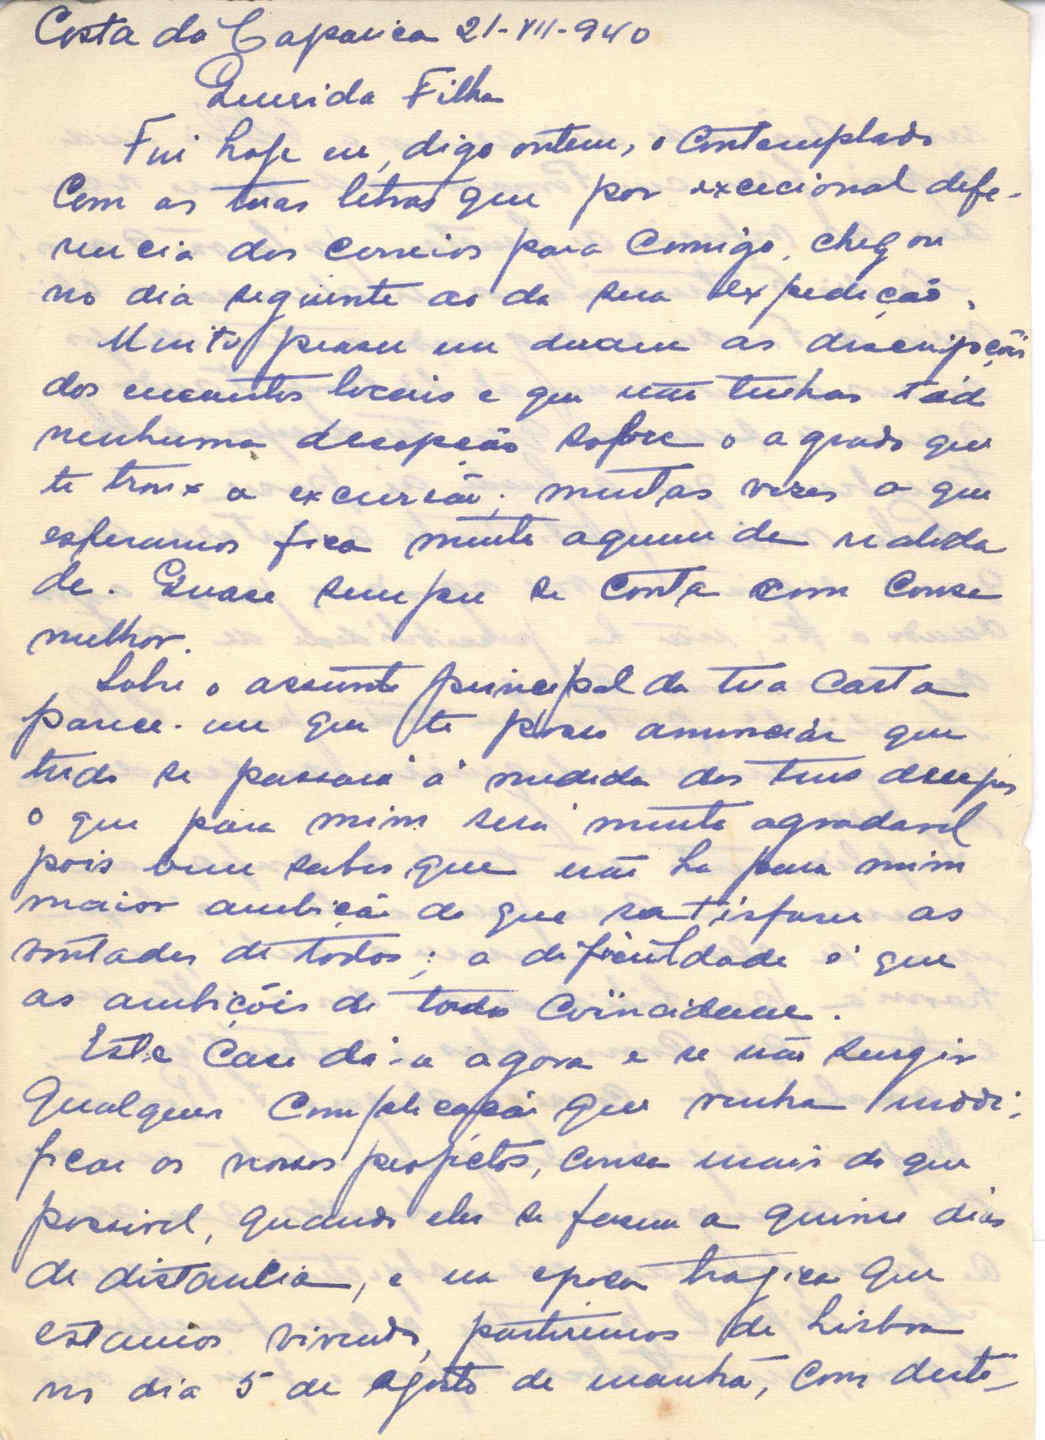 Costa da Caparica 21-VII-940
Querida Filha
Fui hoje eu, digo ontem, o contemplado
com as tuas letras que por excecional defe-
rencia dos correios para comigo, chegou
no dia seguinte ao da sua expedição.
Muito prazer me deram as descripções
dos encantos locais e que não tenhas tido
nenhuma decepção sobre o agrado que
te troux a excursão; muitas vezes o que
esperamos fica muito aquem da realida
de. Quase sempre se conta com cousa
melhor.
Sobre o assunto principal da tua carta
parece-me que te posso anunciar que
tudo se passará á medida dos teus desejos
o que para mim será muito agradavel
pois bem sabes que não ha para mim
maior ambição do que satisfazer as
vontades de todos; a dificuldade é que
as ambições de todos coïncidam.
Este caso dá-se agora e se não surgir
qualquer complicação que venha modi-
ficar os nossos projétos, cousa mais do que
possivel, quando eles se fazem a quinse dias
de distancia, e na epoca tragica que
estamos vivendo, partiremos de Lisboa
no dia 5 de agosto de manhã, com desti-